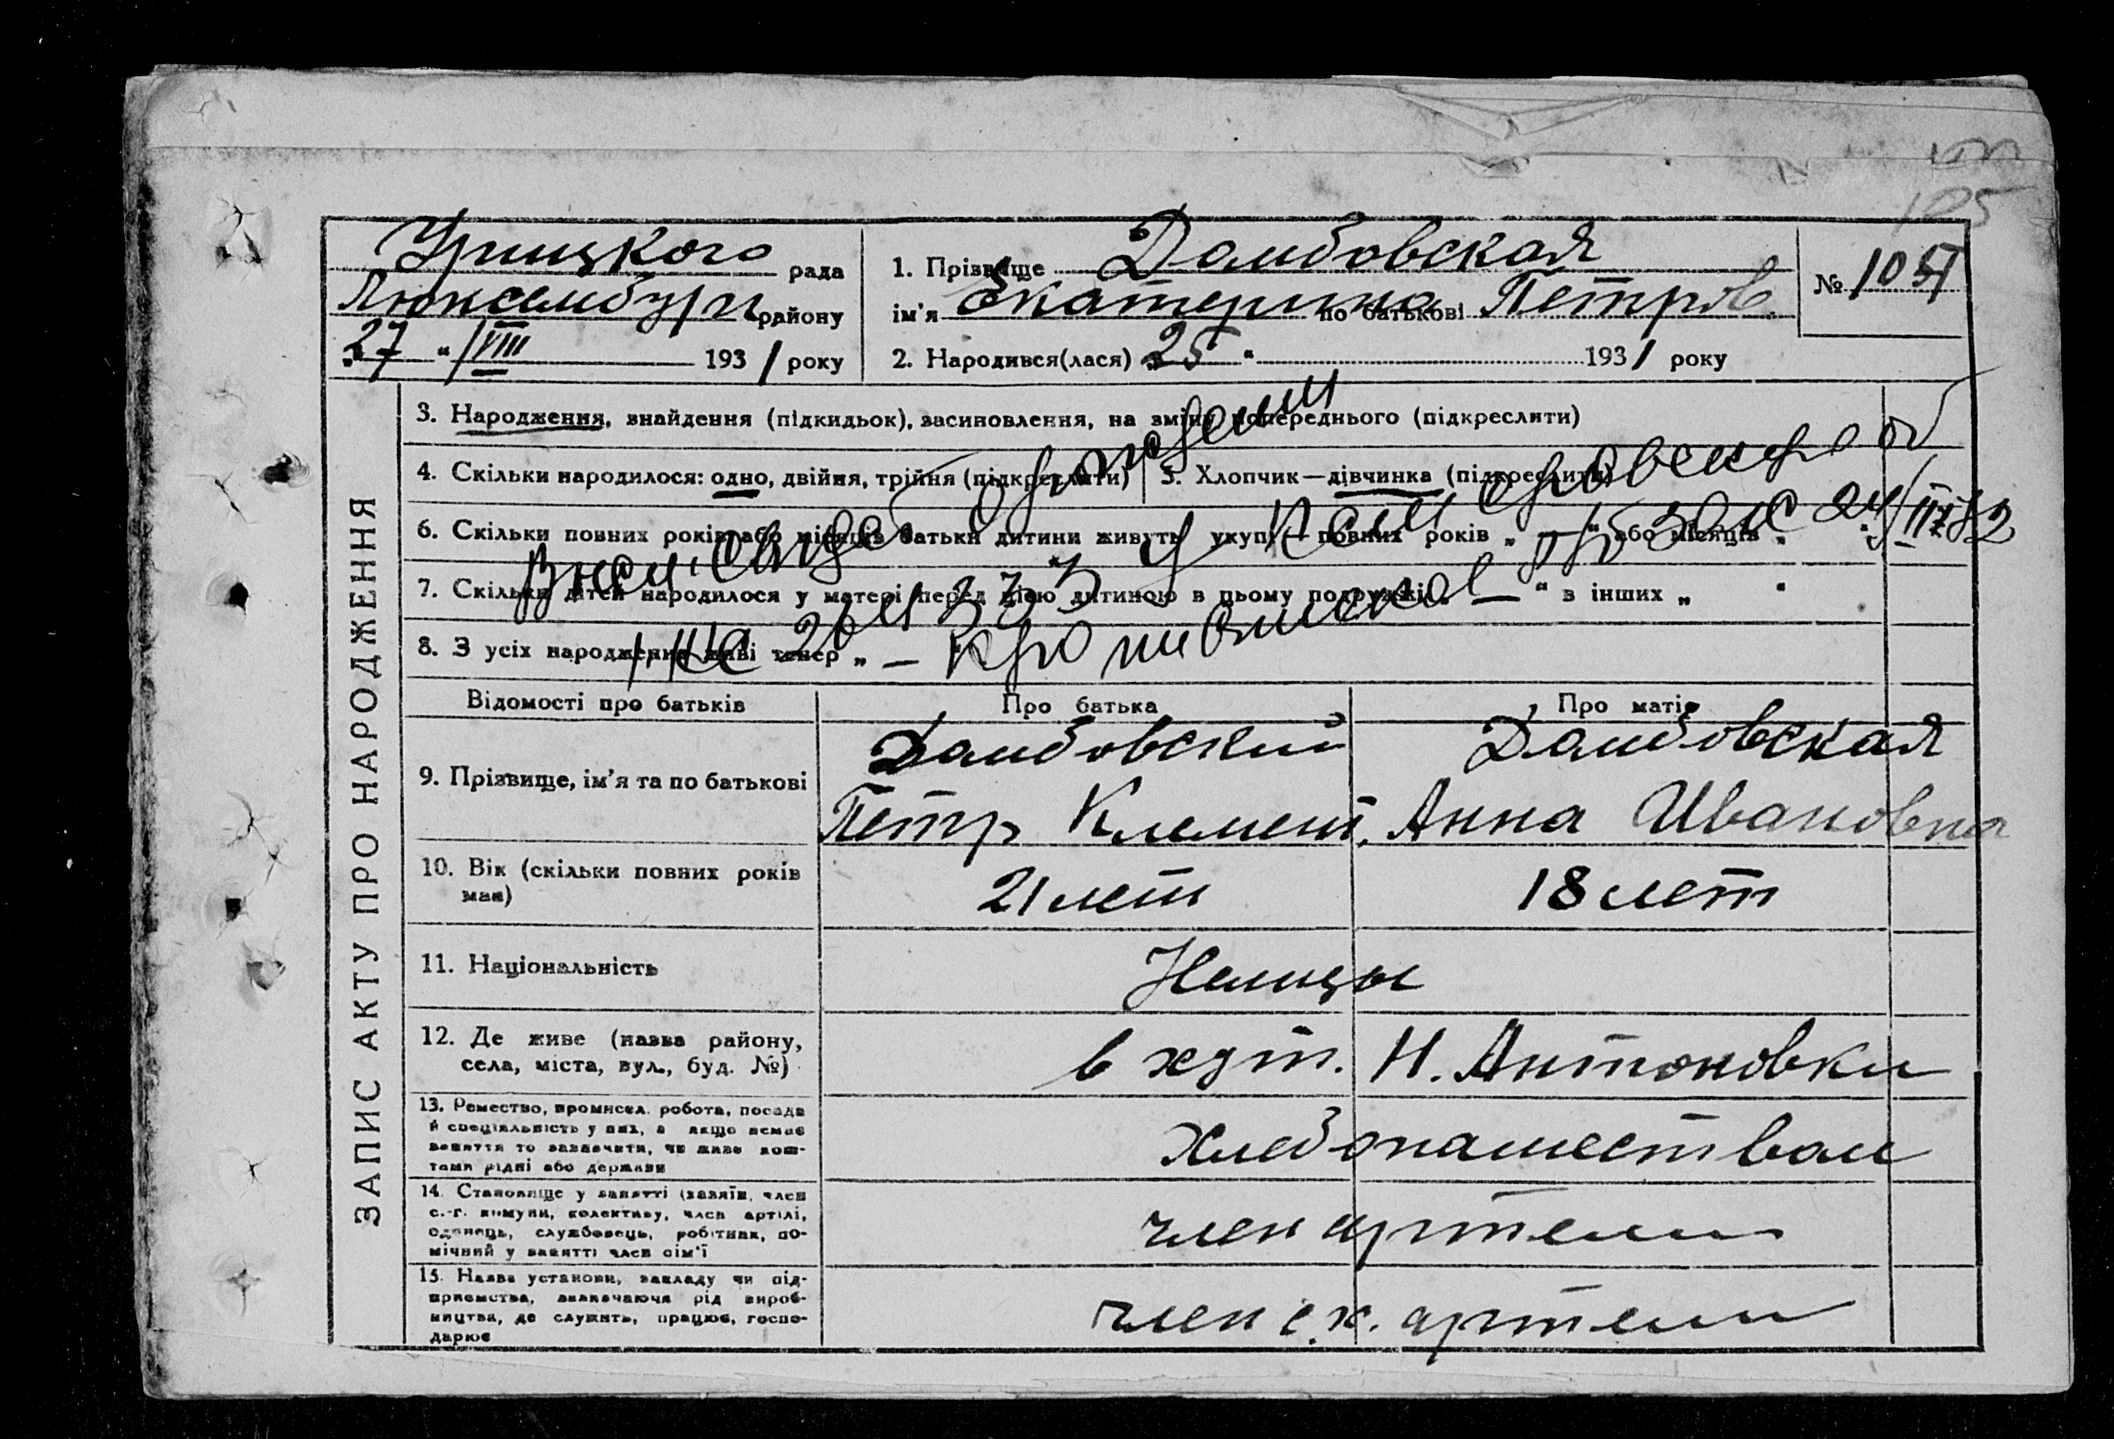 105
Урицкого рада
Люксембург району
„27 “ VIII 1931 року
1. Прізвище Домбовская
ім'я Екатерина по батькові Петров.
№ 105
2. Народився(лася) „25 “ 1931 року
ЗАПИС АКТУ ПРО НАРОДЖЕННЯ
3. Народження, знайдення (підкидьок), засиновлення, на зміну попереднього (підкреслити)
4. Скільки народилося: одно, двійня, трійня (підкреслити)
5. Хлопчик—дівчинка (підкреслити)
6. Скільки повних років або місяців батьки дитини живуть укупі — повних років „ — “ або місяців „ “
7. Скільки дітей народилося у матері перед цією дитиною в цьому подружжі „ — “ в інших „ “
8. З усіх народжених живі тепер „ —
о рождении
24/III 82
Відомості про батьків
Про батька
Про матір
9. Прізвище, ім'я та по батькові
Домбовский
Петр Клемент.
Домбовская
Анна Ивановна
10. Вік (скільки повних років
має)
21 лет
18 лет
11. Національність
Немцы
12. Де живе (назва району,
села, міста, вул., буд. №)
в хут. Н. Антоновки
13. Ремество, промисел, робота, посада
й спеціяльність у них, а якщо немає
заняття то зазначити, чи живе кош-
тами рідні або держави
Хлебопашеством
14. Становище у занятті (хазяїн, член
с.-г. комуни, колективу, член артілі,
одинець, службовець, робітник, по-
мічний у занятті член сім'ї
член артели
15. Назва установи, закладу чи під-
приємства, зазначаючи рід вироб-
ництва, де служить, працює, госпо-
дарює
член с.х. артели